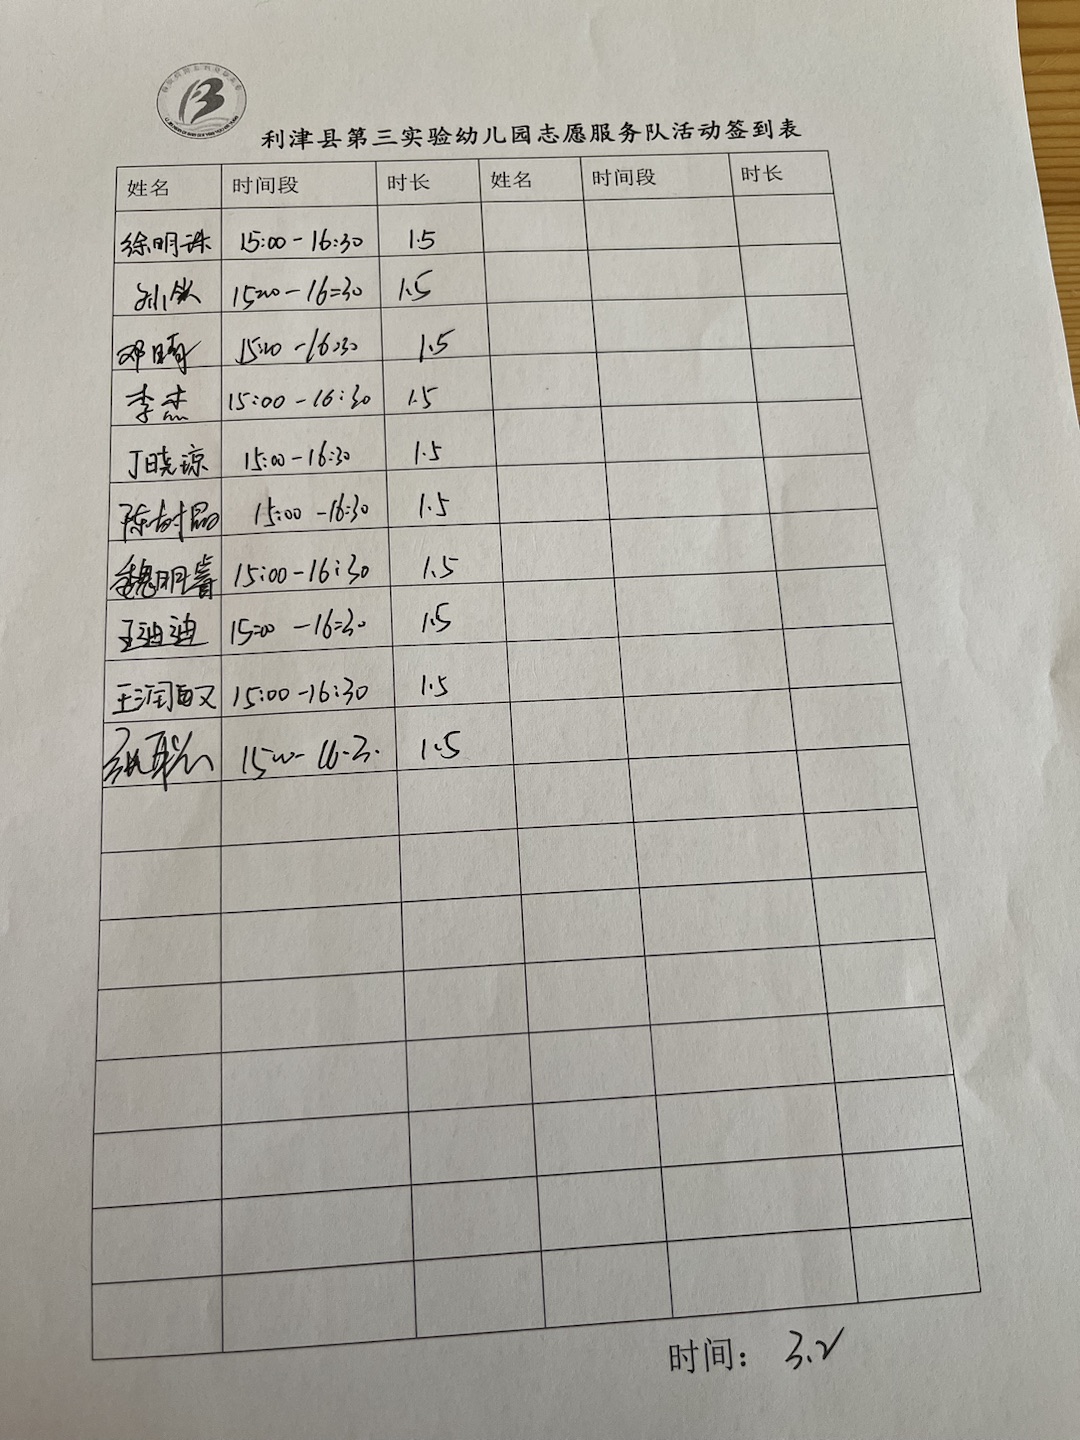 利津县第三实验幼儿园志愿服务队活动签到表
姓名 时间段 时长 姓名 时间段 时长
徐明珠 15:00-16:30 1.5
孙钦 15:00-16:30 1.5
邓晴 15:00-16:30 1.5
李杰 15:00-16:30 1.5
丁晓琼 15:00-16:30 1.5
陈树晶 15:00-16:30 1.5
魏明睿 15:00-16:30 1.5
王迪迪 15:00-16:30 1.5
王润雨 15:00-16:30 1.5
15:00-16:30 1.5
时间: 3.2